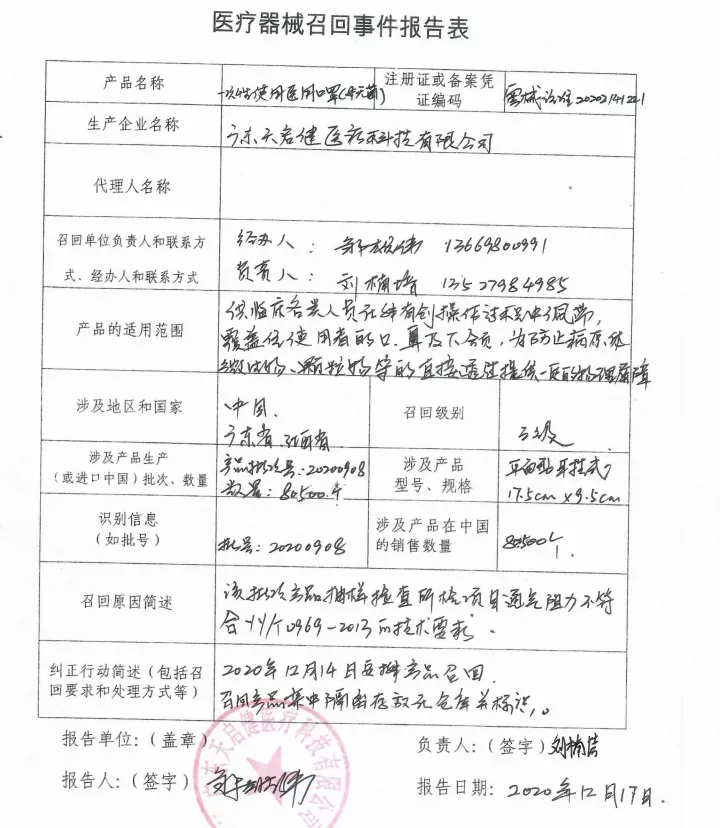 医疗器械召回事件报告表
产品名称 一次性使用医用口罩(非无菌) 注册证或备案凭证编码 粤械注准20202141221
生产企业名称 广东天启健医疗科技有限公司
代理人名称
召回单位负责人和联系方式、经办人和联系方式
经办人: 伟 13669800991
负责人: 刘楠培 13527984985
产品的适用范围
供临床各类人员在非有创操作过程中佩带,
覆盖住使用者的口、鼻及下颌,为防止病原体
微生物、颗粒物等的直接透过提供一定的物理屏障
涉及地区和国家 中国.
广东省.江西省. 召回级别 三级
涉及产品生产(或进口中国)批次、数量
产品批次号:20200908
数量:80500个
涉及产品型号、规格
平面型耳挂式
17.5cm×9.5cm
识别信息(如批号) 批号:20200908
涉及产品在中国的销售数量 80500个.
召回原因简述
该批次产品抽样检查所检项目通气阻力不符
合YY/T0969-2013的技术要求.
纠正行动简述(包括召回要求和处理方式等)
2020年12月14日安排产品召回.
召回产品集中隔离存放于仓库并标识.
报告单位:(盖章) 负责人:(签字)刘楠培
报告人:(签字) 伟 报告日期: 2020年12月17日.
广东天启健医疗科技有限公司